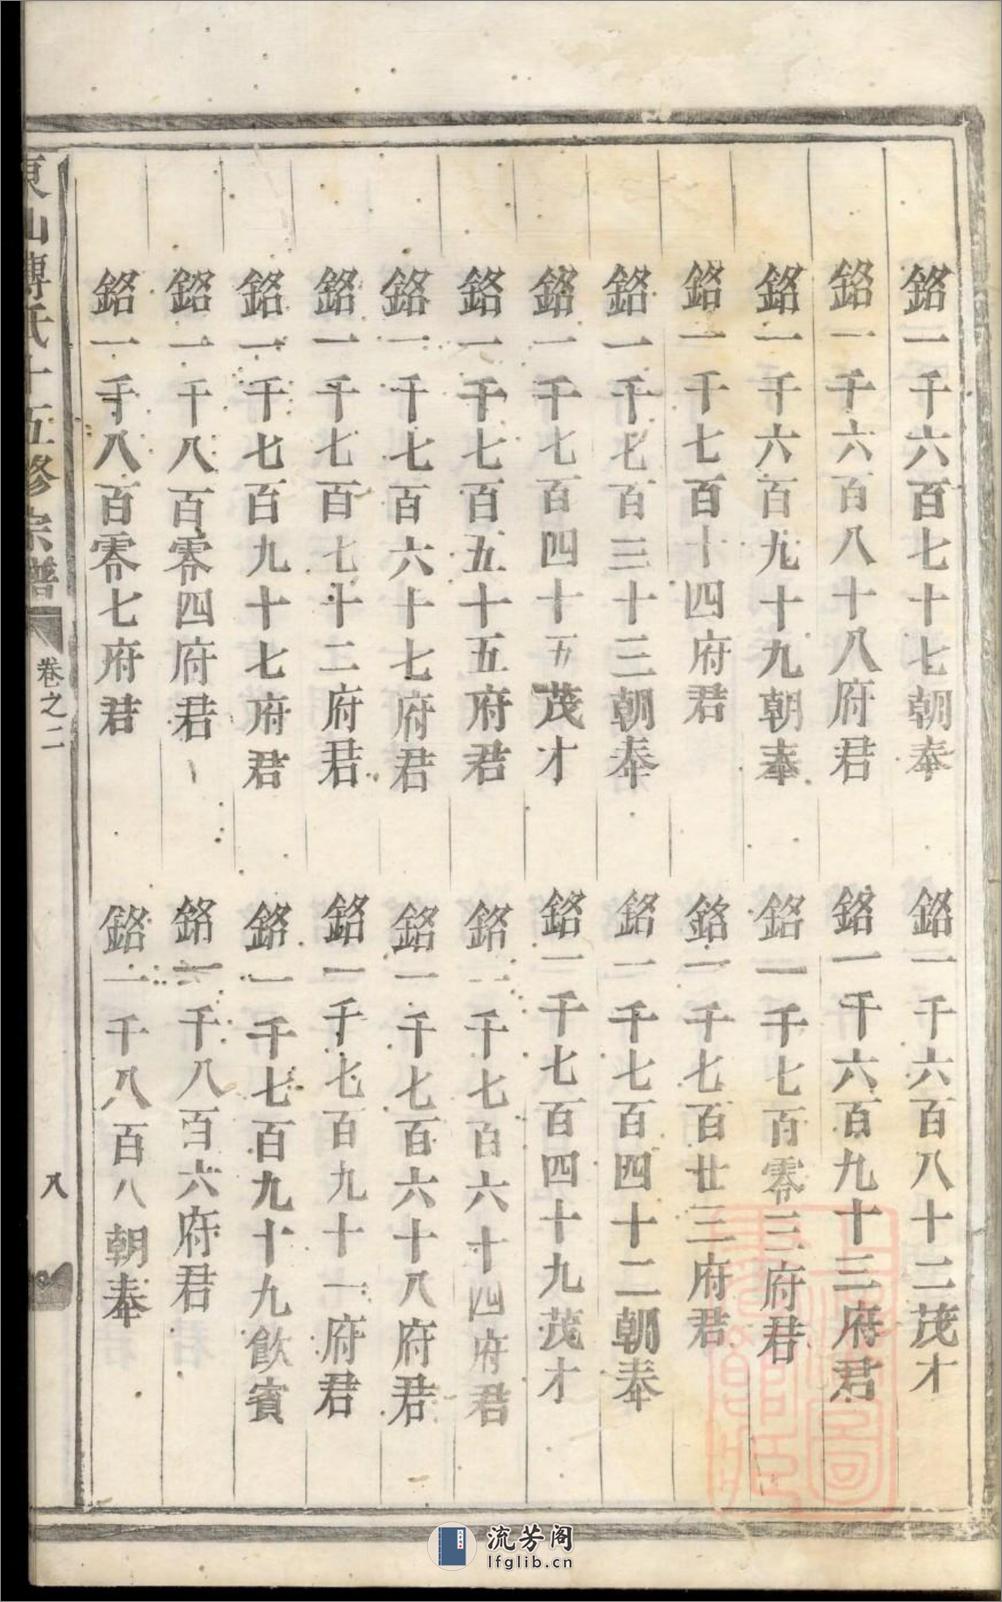 銘一千六百七十七朝奉
銘一千六百八十二茂才
銘一千六百八十八府君
銘一千六百九十三府君
銘一千六百九十九朝奉
銘一千七百零三府君
銘一千七百十四府君
銘一千七百廿三府君
銘一千七百三十三朝奉
銘一千七百四十二朝奉
銘一千七百四十五茂才
銘一千七百四十九茂才
銘一千七百五十五府君
銘一千七百六十四府君
銘一千七百六十七府君
銘一千七百六十八府君
銘一千七百七十二府君
銘一千七百九十一府君
銘一千七百九十七府君
銘一千七百九十九飲賓
銘一千八百零四府君
銘一千八百六府君
銘一千八百零七府君
銘一千八百八朝奉
東山傅氏十五修宗譜 卷之二 八
流芳阁
lfglib.cn